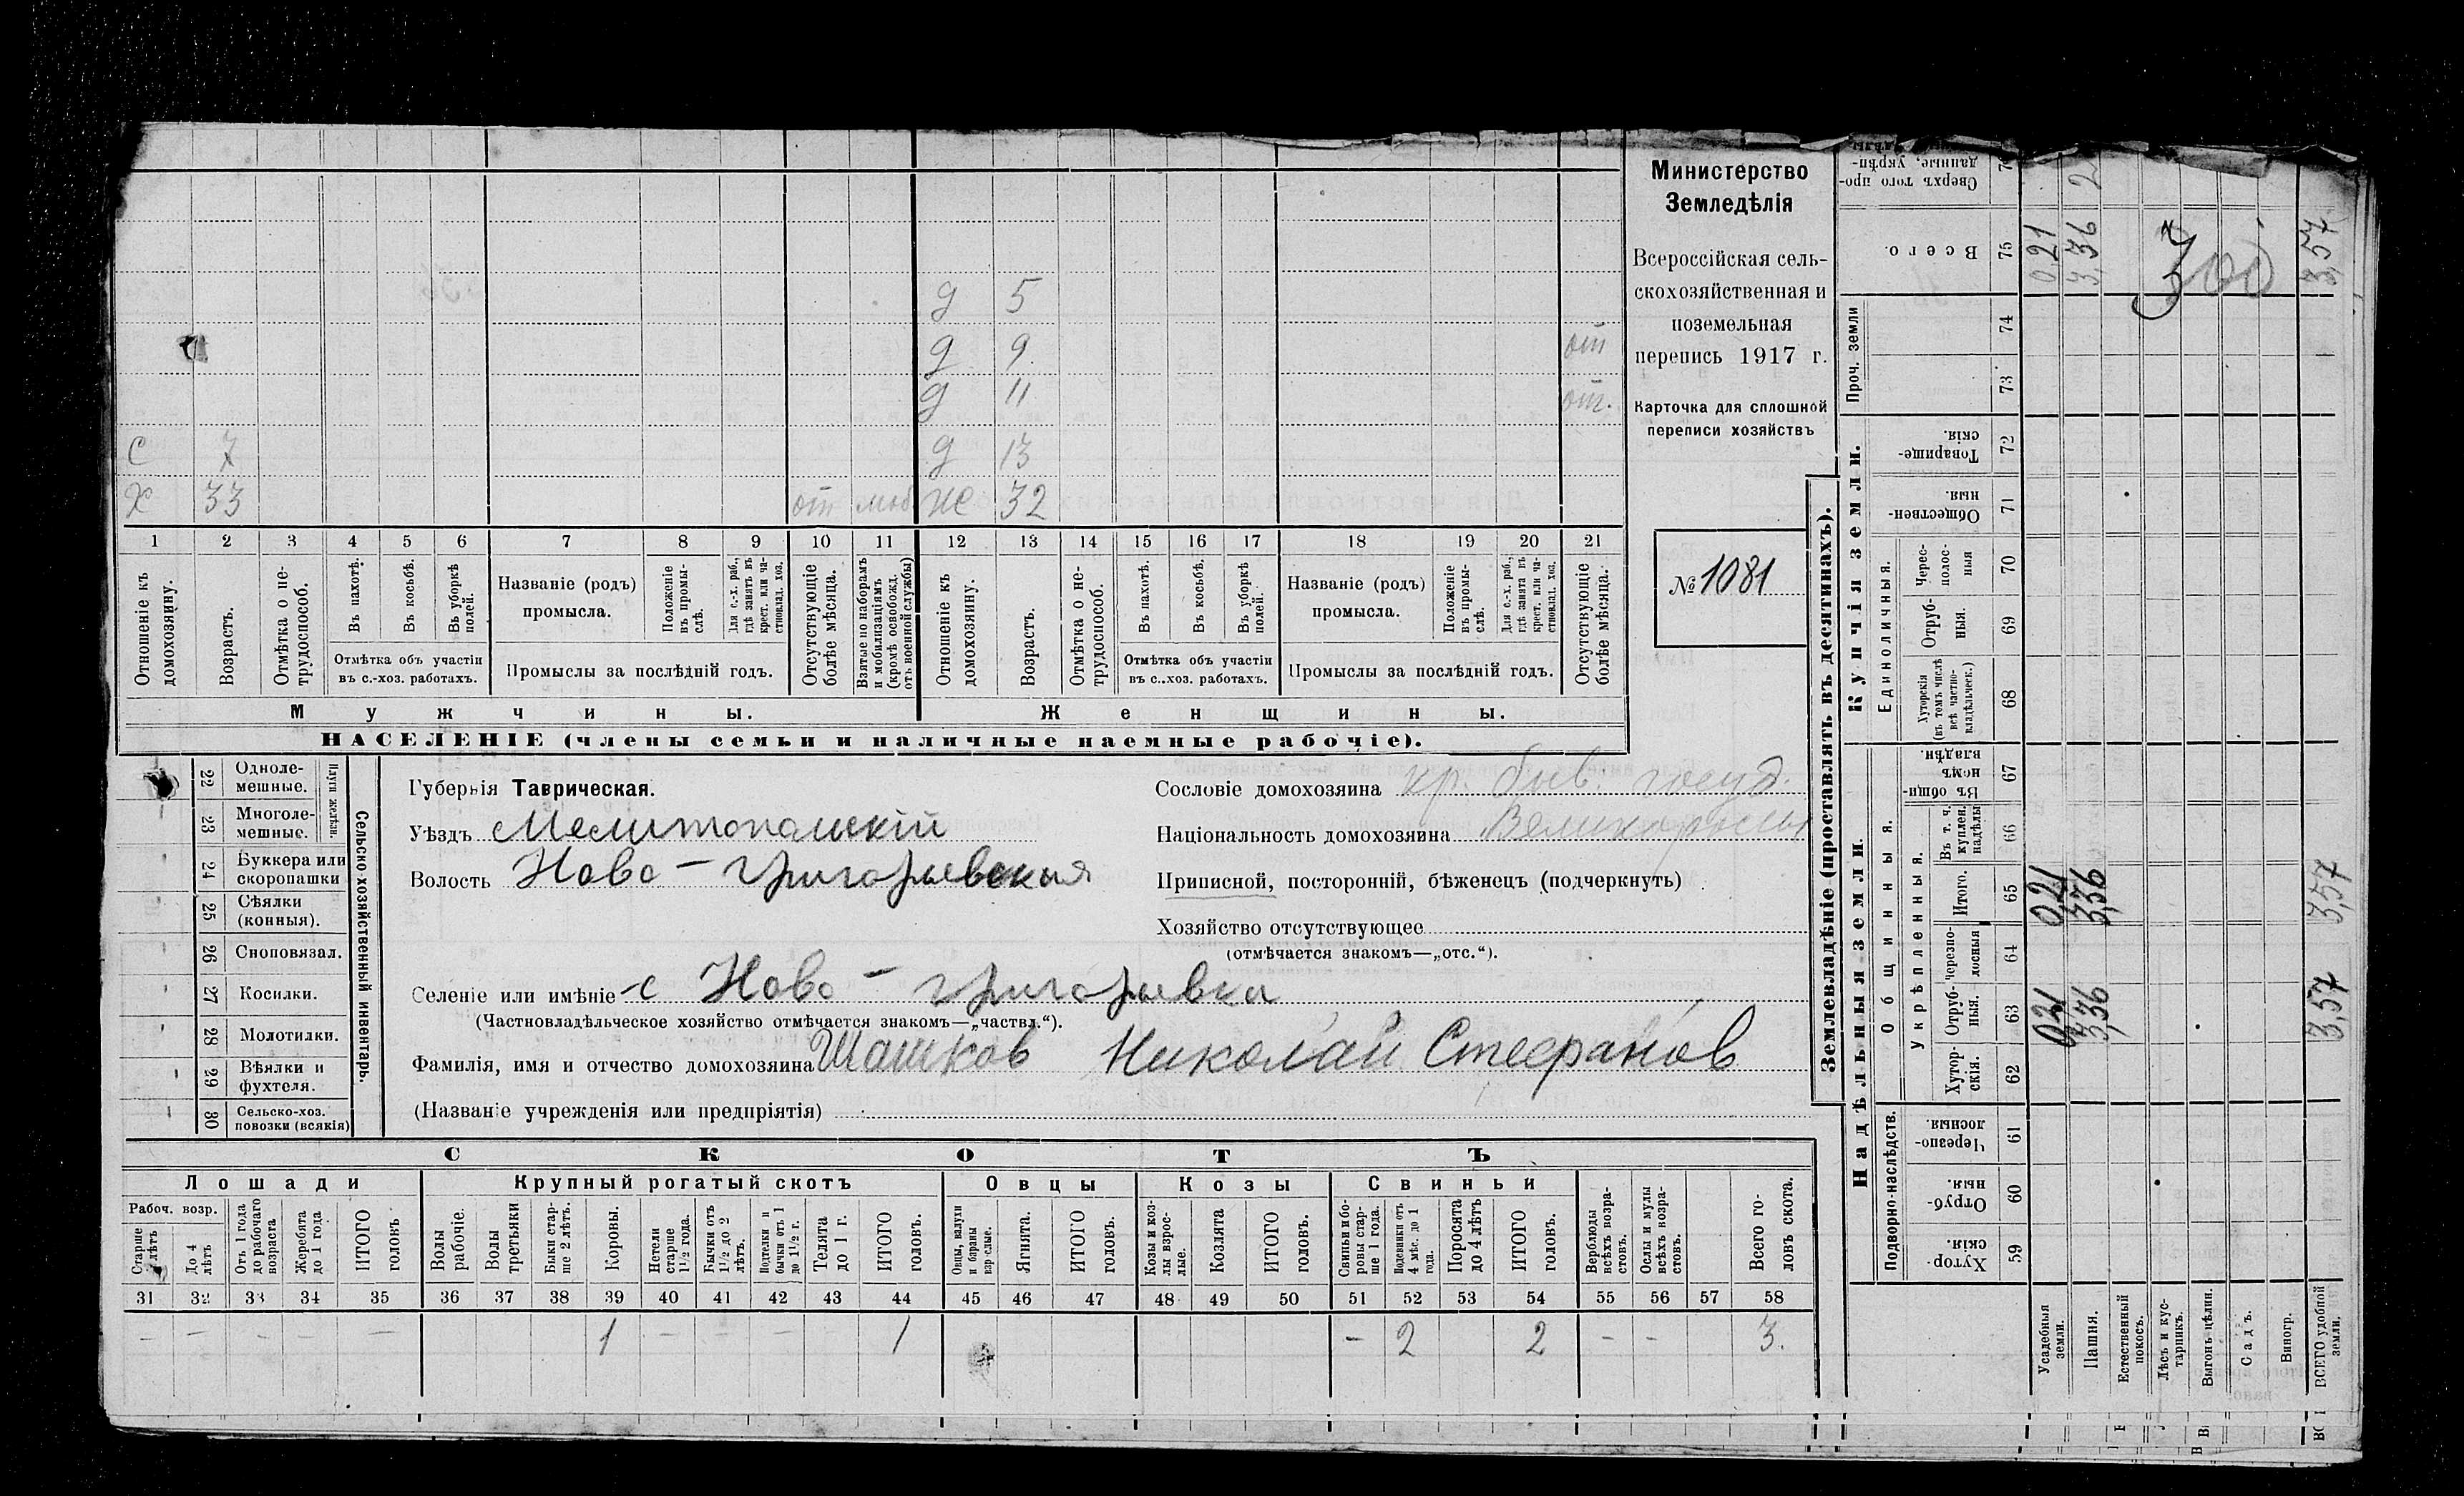 Министерство
Земледѣлія
Всероссійская сель-
скохозяйственная и
поземельная
перепись 1917 г.
Карточка для сплошной
переписи хозяйствъ
№ 1081
д 5
д 9 от
д 11 от.
с 7 д 13
х 33 от моб. ж 32
1 2 3 4 5 6 7 8 9 10 11 12 13 14 15 16 17 18 19 20 21
Отношеніе къ домохозяину.
Возрастъ.
Отмѣтка о не-трудоспособ.
Въ пахотѣ.
Въ косьбѣ.
Въ уборкѣ полей.
Отмѣтка объ участіи въ с.-хоз. работахъ.
Названіе (родъ) промысла.
Положеніе въ промы-слѣ.
Для с.-х. раб., гдѣ занятъ въ крест. или ча-стновлад. хоз.
Промыслы за послѣдній годъ.
Отсутствующіе болѣе мѣсяца.
Взятые по наборамъ и мобилизаціямъ (кромѣ освобожд. отъ военной службы)
Отношеніе къ домохозяину.
Возрастъ.
Отмѣтка о не-трудоспособ.
Въ пахотѣ.
Въ косьбѣ.
Въ уборкѣ полей.
Отмѣтка объ участіи въ с.-хоз. работахъ.
Названіе (родъ) промысла.
Положеніе въ промы-слѣ.
Для с.-х. раб., гдѣ занята въ крест. или ча-стновлад. хоз.
Промыслы за послѣдній годъ.
Отсутствующіе болѣе мѣсяца.
Мужчины. Женщины.
НАСЕЛЕНІЕ (члены семьи и наличные наемные рабочіе).
Сельско-хозяйственный инвентарь.
Плуги желѣзн.
22 Одноле-мешные.
23 Многоле-мешные.
24 Буккера или скоропашки
25 Сѣялки (конныя).
26 Сноповязал.
27 Косилки.
28 Молотилки.
29 Вѣялки и фухтеля.
30 Сельско-хоз. повозки (всякія)
Губернія Таврическая.
Уѣздъ Мелитопольскій
Волость Ново-григорьевская
Сословіе домохозяина кр. быв. госуд.
Національность домохозяина Великороссы
Приписной, посторонній, бѣженецъ (подчеркнуть)
Хозяйство отсутствующее
(отмѣчается знакомъ—„отс.“).
Селеніе или имѣніе с Ново-григорьевка
(Частновладѣльческое хозяйство отмѣчается знакомъ—„частвл.“).
Фамилія, имя и отчество домохозяина Шашков Николай Стефанов
(Названіе учрежденія или предпріятія)
СКОТЪ
Лошади Крупный рогатый скотъ Овцы Козы Свиньи
Рабоч. возр.
Старше 4 лѣтъ
До 4 лѣтъ
Отъ 1 года до рабочаго возраста
Жеребята до 1 года
ИТОГО головъ
Волы рабочіе.
Волы третьяки
Быки стар-ше 2 лѣтъ.
Коровы.
Нетели старше 1½ года.
Бычки отъ 1½ до 2 лѣтъ.
Подтелки и бычки отъ 1 до 1½ г.
Телята до 1 г.
ИТОГО головъ.
Овцы, валухи и бараны взрослые.
Ягнята.
ИТОГО головъ.
Козы и коз-лы взрос-лые.
Козлята
ИТОГО головъ.
Свиньи и бо-ровы стар-ше 1 года.
Подсвинки отъ 4 мѣс. до 1 года.
Поросята до 4
ИТОГО головъ.
Верблюды всѣхъ возра-стовъ.
Ослы и мулы всѣхъ возра-стовъ.
Всего го-ловъ скота.
31 32 33 34 35 36 37 38 39 40 41 42 43 44 45 46 47 48 49 50 51 52 53 54 55 56 57 58
— — — — — 1 — — — 1 — 2 2 — — 3.
Землевладѣніе (проставлять въ десятинахъ).
Купчія земли.
Сверхъ того про-данные, укрѣп-
Всего. 75
Проч. земли 74 73
Товарище-скія. 72
Обществен-ныя. 71
Единоличныя.
Черес-полос-ныя 70
Отруб-ныя. 69
Хуторскія (въ томъ числѣ всѣ частно-владѣльческ.) 68
Надѣльныя земли.
Общинныя.
Въ общи-номъ владѣн. 67
Укрѣпленныя.
Въ т. ч. куплен. надѣлы 66
Итого. 65
Черезпо-лосныя 64
Отруб-ныя. 63
Хутор-скія. 62
Подворно-наслѣдств.
Черезпо-лосныя. 61
Отруб-ныя. 60
Хутор-скія. 59
0,21 3,36 3,57
300
0,21 3,36 3,57
0,21 3,36 3,57
Усадебныя земли.
Пашня.
Естественный покосъ.
Лѣсъ и кус-тарникъ.
Выгонъ цѣлин.
Садъ.
Виногр.
ВСЕГО удобной земли.